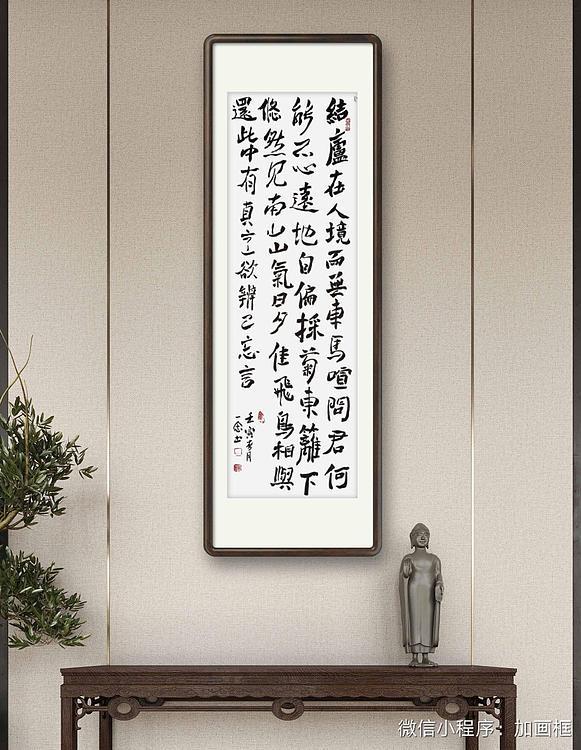 結廬在人境而無車馬喧問君何
能尔心遠地自偏採菊東籬下
悠然見南山山氣日夕佳飛鳥相與
還此中有真意欲辨已忘言
壬寅
微信小程序：加画框